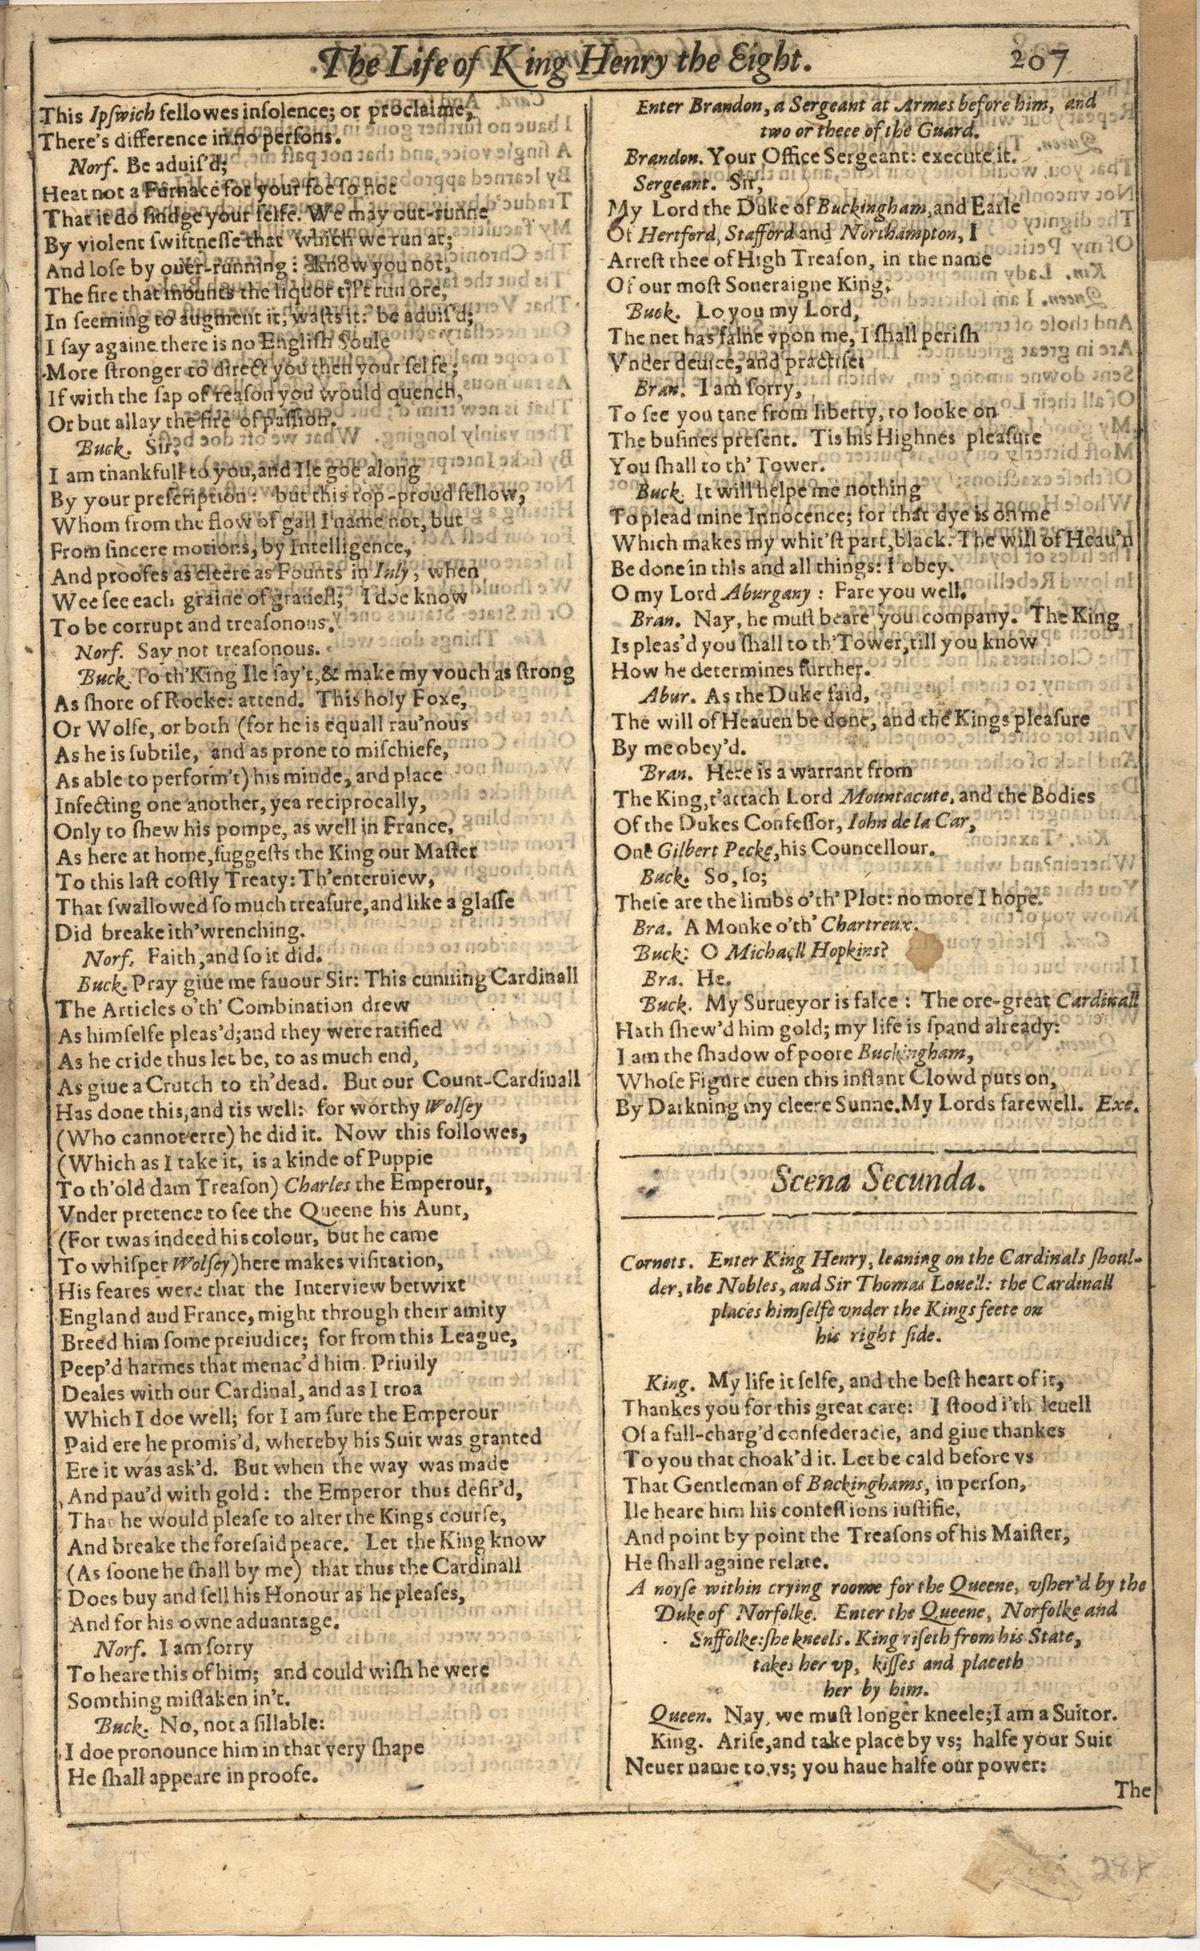 The Life of King Henry the Eight.
207
This Ipſwich fellowes inſolence; or proclaime,
There's difference in no perſons.
Norf. Be aduis'd;
Heat not a Furnace for your foe ſo hot
That it do ſindge your ſelfe. We may out-runne
By violent ſwiftneſſe that which we run at;
And loſe by ouer-running: know you not,
The fire that mounts the liquor til't run ore,
In ſeeming to augment it, waſts it: be aduis'd;
I ſay againe there is no Engliſh Soule
More ſtronger to direct you then your ſelfe;
If with the ſap of reaſon you would quench,
Or but allay the fire of paſſion.
Buck. Sir,
I am thankfull to you, and Ile goe along
By your preſcription: but this top-proud fellow,
Whom from the flow of gall I name not, but
From ſincere motions, by Intelligence,
And proofes as cleere as Founts in Iuly, when
Wee ſee each graine of grauell; I doe know
To be corrupt and treaſonous.
Norf. Say not treaſonous.
Buck. To th'King Ile ſay't, & make my vouch as ſtrong
As ſhore of Rocke: attend. This holy Foxe,
Or Wolfe, or both (for he is equall rau'nous
As he is ſubtile, and as prone to miſchiefe,
As able to perform't) his minde, and place
Infecting one another, yea reciprocally,
Only to ſhew his pompe, as well in France,
As here at home, ſuggeſts the King our Maſter
To this laſt coſtly Treaty: Th'enteruiew,
That ſwallowed ſo much treaſure, and like a glaſſe
Did breake ith'wrenching.
Norf. Faith, and ſo it did.
Buck. Pray giue me fauour Sir: This cunning Cardinall
The Articles o'th' Combination drew
As himſelfe pleas'd; and they were ratified
As he cride thus let be, to as much end,
As giue a Crutch to th'dead. But our Count-Cardinall
Has done this, and tis well: for worthy Wolſey
(Who cannot erre) he did it. Now this followes,
(Which as I take it, is a kinde of Puppie
To th'old dam Treaſon) Charles the Emperour,
Vnder pretence to ſee the Queene his Aunt,
(For twas indeed his colour, but he came
To whiſper Wolſey) here makes viſitation,
His feares were that the Interview betwixt
England and France, might through their amity
Breed him ſome preiudice; for from this League,
Peep'd harmes that menac'd him. Priuily
Deales with our Cardinal, and as I troa
Which I doe well; for I am ſure the Emperour
Paid ere he promis'd, whereby his Suit was granted
Ere it was ask'd. But when the way was made
And pau'd with gold: the Emperor thus deſir'd,
That he would pleaſe to alter the Kings courſe,
And breake the foreſaid peace. Let the King know
(As ſoone he ſhall by me) that thus the Cardinall
Does buy and ſell his Honour as he pleaſes,
And for his owne aduantage.
Norf. I am ſorry
To heare this of him; and could wiſh he were
Somthing miſtaken in't.
Buck. No, not a ſillable:
I doe pronounce him in that very ſhape
He ſhall appeare in proofe.
Enter Brandon, a Sergeant at Armes before him, and
two or three of the Guard.
Brandon. Your Office Sergeant: execute it.
Sergeant. Sir,
My Lord the Duke of Buckingham, and Earle
Of Hertford, Stafford and Northampton, I
Arreſt thee of High Treaſon, in the name
Of our moſt Soueraigne King.
Buck. Lo you my Lord,
The net has falne vpon me, I ſhall periſh
Vnder deuice, and practiſe.
Bran. I am ſorry,
To ſee you tane from liberty, to looke on
The buſines preſent. Tis his Highnes pleaſure
You ſhall to th' Tower.
Buck. It will helpe me nothing
To plead mine Innocence; for that dye is on me
Which makes my whit'ſt part, black. The will of Heau'n
Be done in this and all things: I obey.
O my Lord Aburgany: Fare you well.
Bran. Nay, he muſt beare you company. The King
Is pleas'd you ſhall to th'Tower, till you know
How he determines further.
Abur. As the Duke ſaid,
The will of Heauen be done, and the Kings pleaſure
By me obey'd.
Bran. Here is a warrant from
The King, t'attach Lord Mountacute, and the Bodies
Of the Dukes Confeſſor, Iohn de la Car,
One Gilbert Pecke, his Councellour.
Buck. So, ſo;
Theſe are the limbs o'th' Plot: no more I hope.
Bra. A Monke o'th' Chartreux.
Buck. O Michaell Hopkins?
Bra. He.
Buck. My Surueyor is falce: The ore-great Cardinall
Hath ſhew'd him gold; my life is ſpand already:
I am the ſhadow of poore Buckingham,
Whoſe Figure euen this inſtant Clowd puts on,
By Darkning my cleere Sunne. My Lords farewell. Exe.
Scena Secunda.
Cornets. Enter King Henry, leaning on the Cardinals ſhoul-
der, the Nobles, and Sir Thomas Louell: the Cardinall
places himſelfe vnder the Kings feete on
his right ſide.
King. My life it ſelfe, and the beſt heart of it,
Thankes you for this great care: I ſtood i'th' leuell
Of a full-charg'd confederacie, and giue thankes
To you that choak'd it. Let be cald before vs
That Gentleman of Buckinghams, in perſon,
Ile heare him his confeſſions iuſtifie,
And point by point the Treaſons of his Maiſter,
He ſhall againe relate.
A noyſe within crying roome for the Queene, vſher'd by the
Duke of Norfolke. Enter the Queene, Norfolke and
Suffolke: ſhe kneels. King riſeth from his State,
takes her vp, kiſſes and placeth
her by him.
Queen. Nay, we muſt longer kneele; I am a Suitor.
King. Ariſe, and take place by vs; halfe your Suit
Neuer name to vs; you haue halfe our power:
The